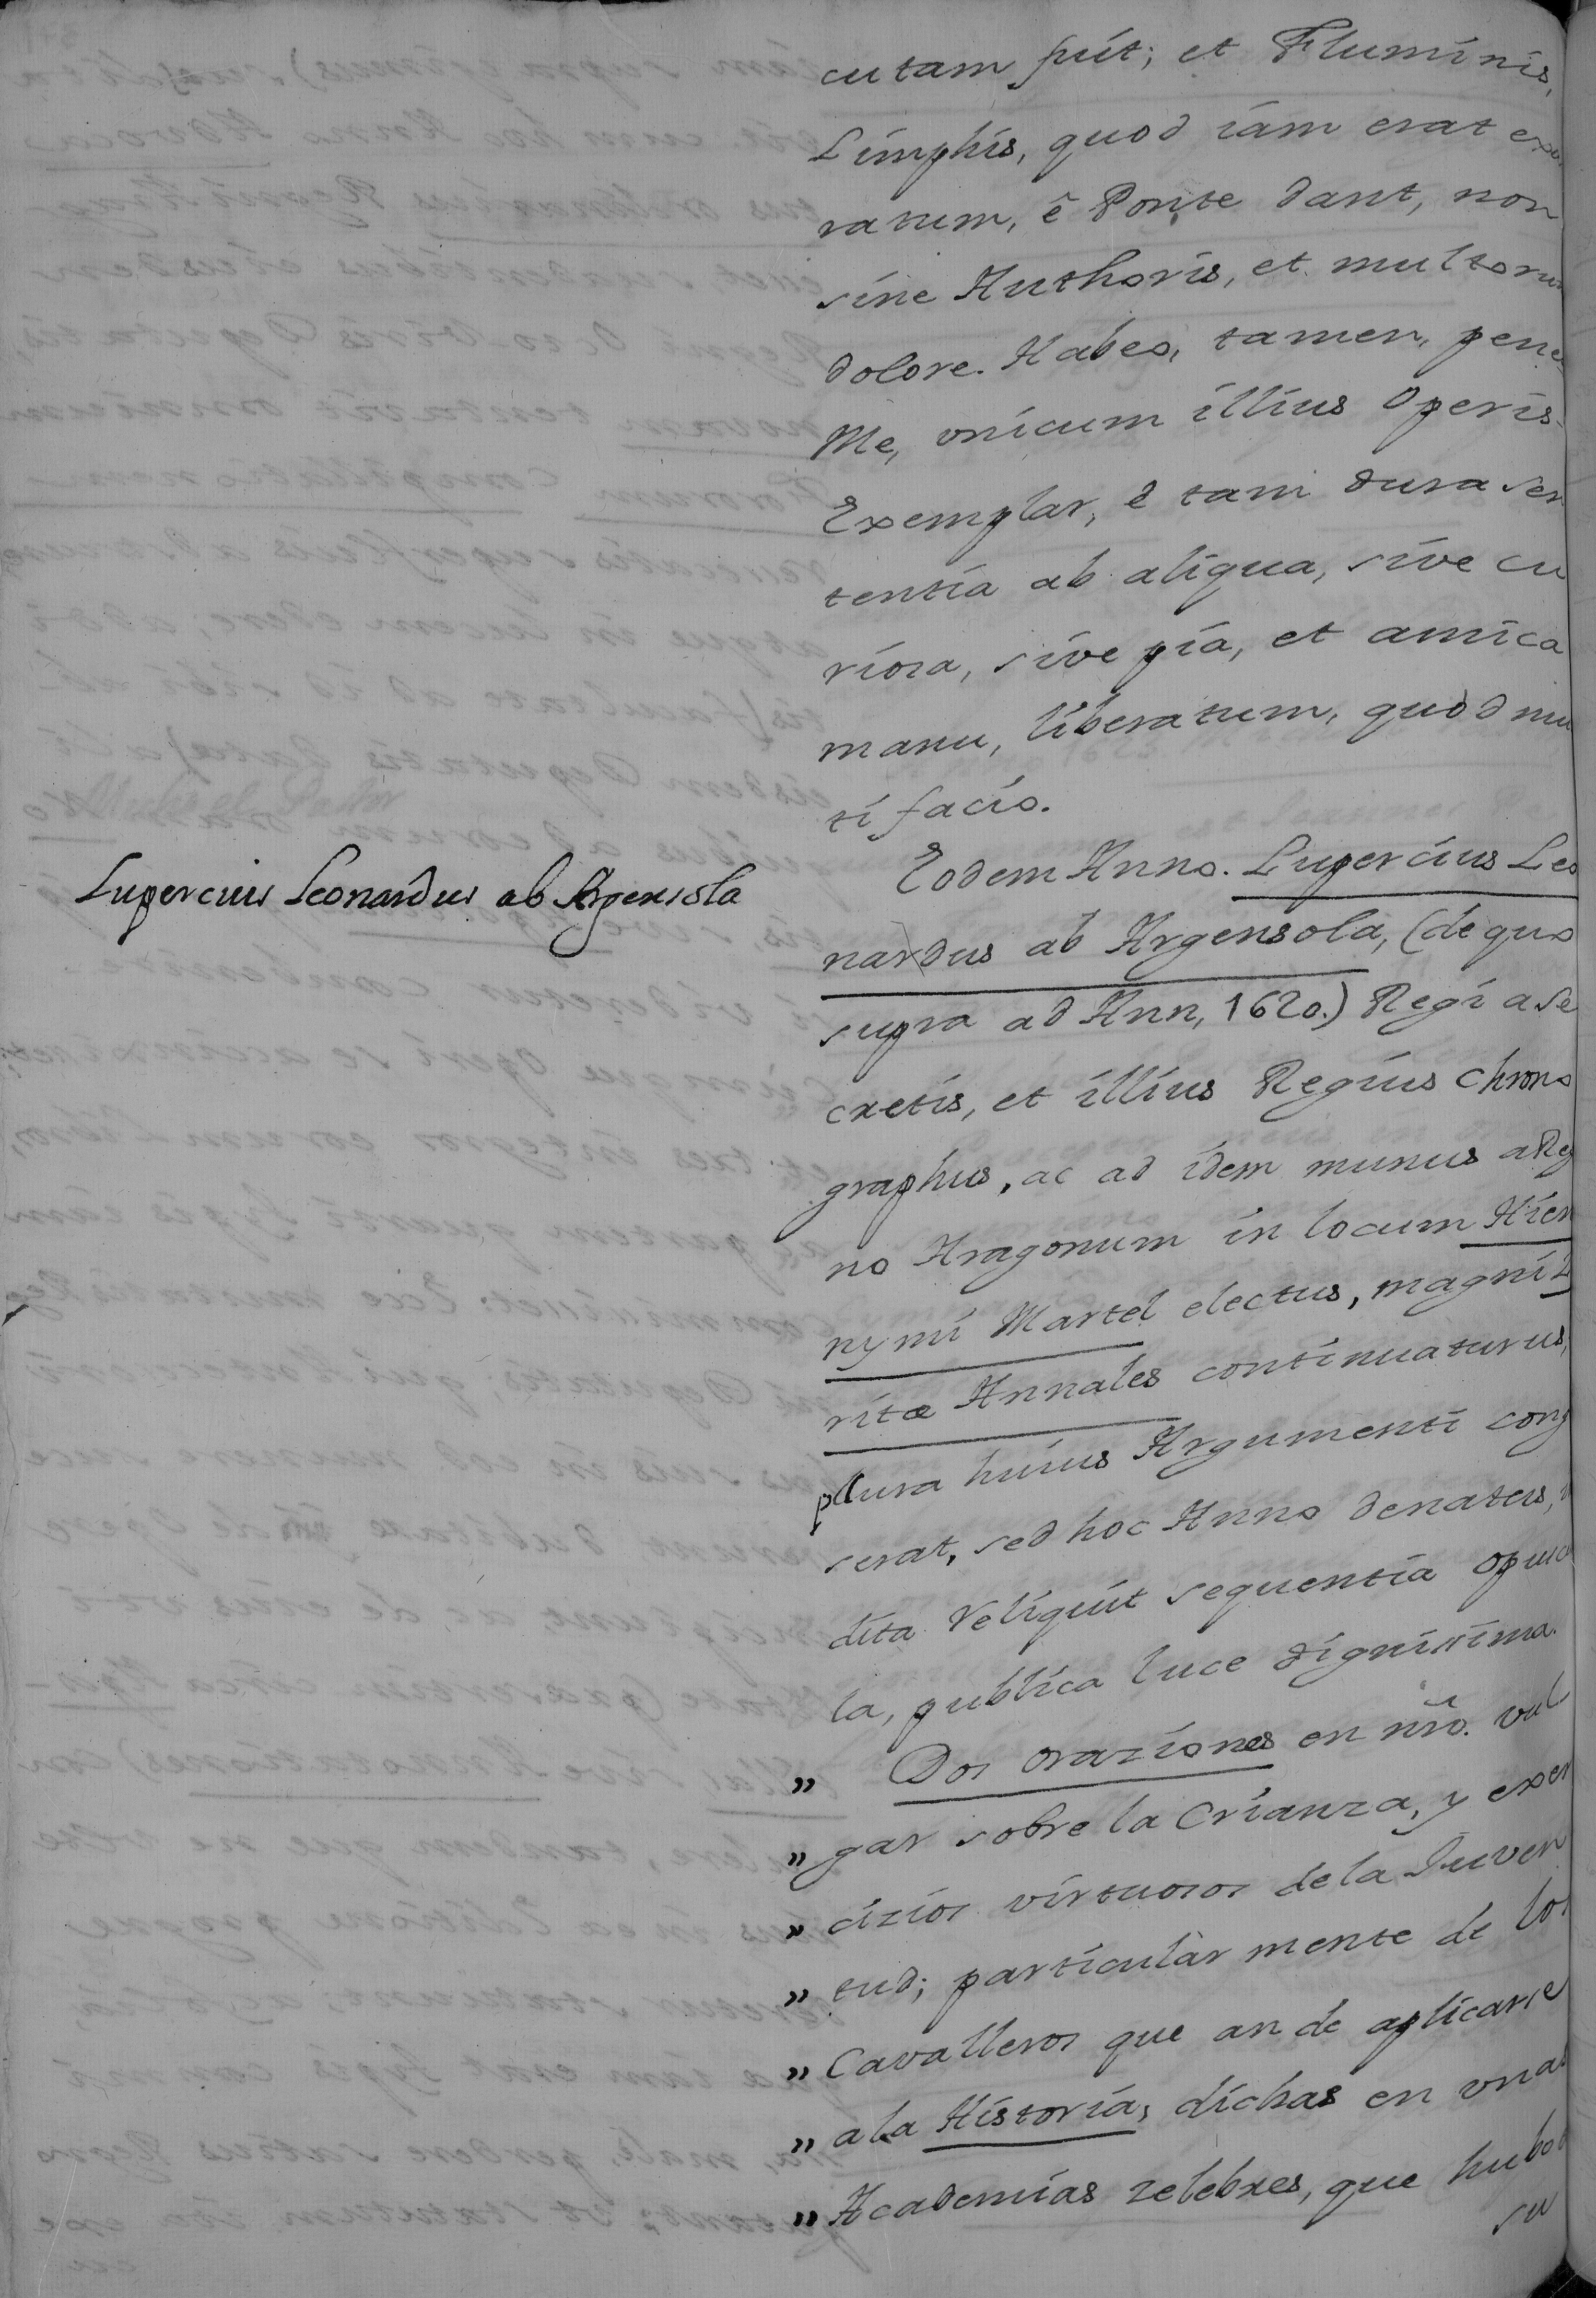 cutam fuit; et Fluminis,
Limphis, quod iam erat exa
ratum, è Ponte dant, non
sine Authoris, et multorum
dolore. Habeo, tamen, pene
Me, vnicum illius Operis
Exemplar, è tam dura sen
tentia ab aliqua, sive cu
riosa, sive pia, et amica
manu, liberatum, quòd mu
ti facio.
Lupercius Leonardus ab Argensola
Eodem Anno. Lupercius Leo
nardus ab Argensola, (de quo
supra ad Ann, 1620.) Regi a Se
cretis, et illius Regius Chrono
graphus, ac ad idem munus a Reg
no Aragonum in locum Hiero
nymi Martel electus, magni Zu
ritæ Annales continuaturus,
plura huius Argumenti cong
serat, sed hoc Anno denatus,
dita reliquit sequentia opuscu
la, publica luce dignissima.
" Dos oraziones en nr̃o. vul
" gar sobre la Crianza, y exer
" cizios virtuosos de la Juven
" tud; particularmente de los
" Cavalleros que an de aplicarse
" a la Historia, dichas en vnas
" Academias zelebres, que hubo
su